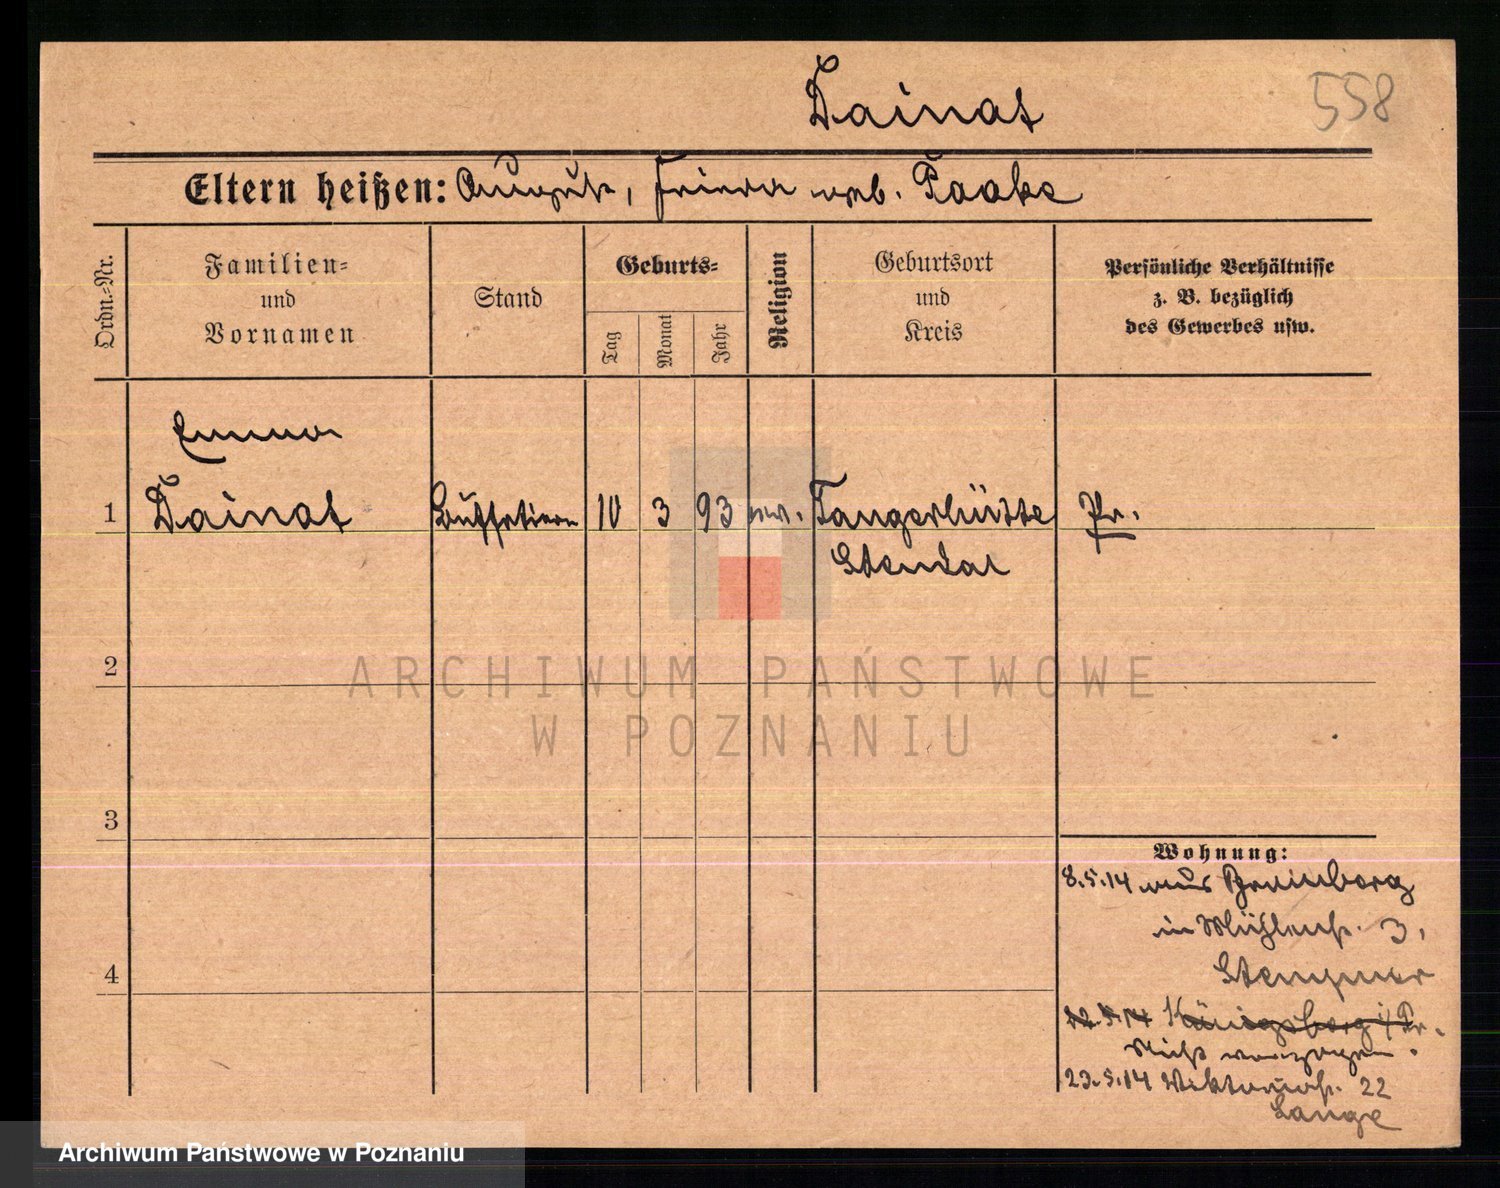 Dainat
558
Eltern heißen: August, Frieda geb. Taake
Ordn.-Nr.
Familien-
und
Vornamen
Stand
Geburts-
Tag
Monat
Jahr
Religion
Geburtsort
und
Kreis
Persönliche Verhältnisse
z. B. bezüglich
des Gewerbes usw.
Emma
1 Dainat Büffetiere 10 3 93 ev. Tangerhütte Pr.
Stendal
2
3
4
Wohnung:
8.5.14 aus
in Mühlenst. 3,
22.5.14 Königsberg i/Pr.
Nicht verzogen.
23.5.14 Viktoriast. 22
Lange
ARCHIWUM PAŃSTWOWE
W POZNANIU
Archiwum Państwowe w Poznaniu